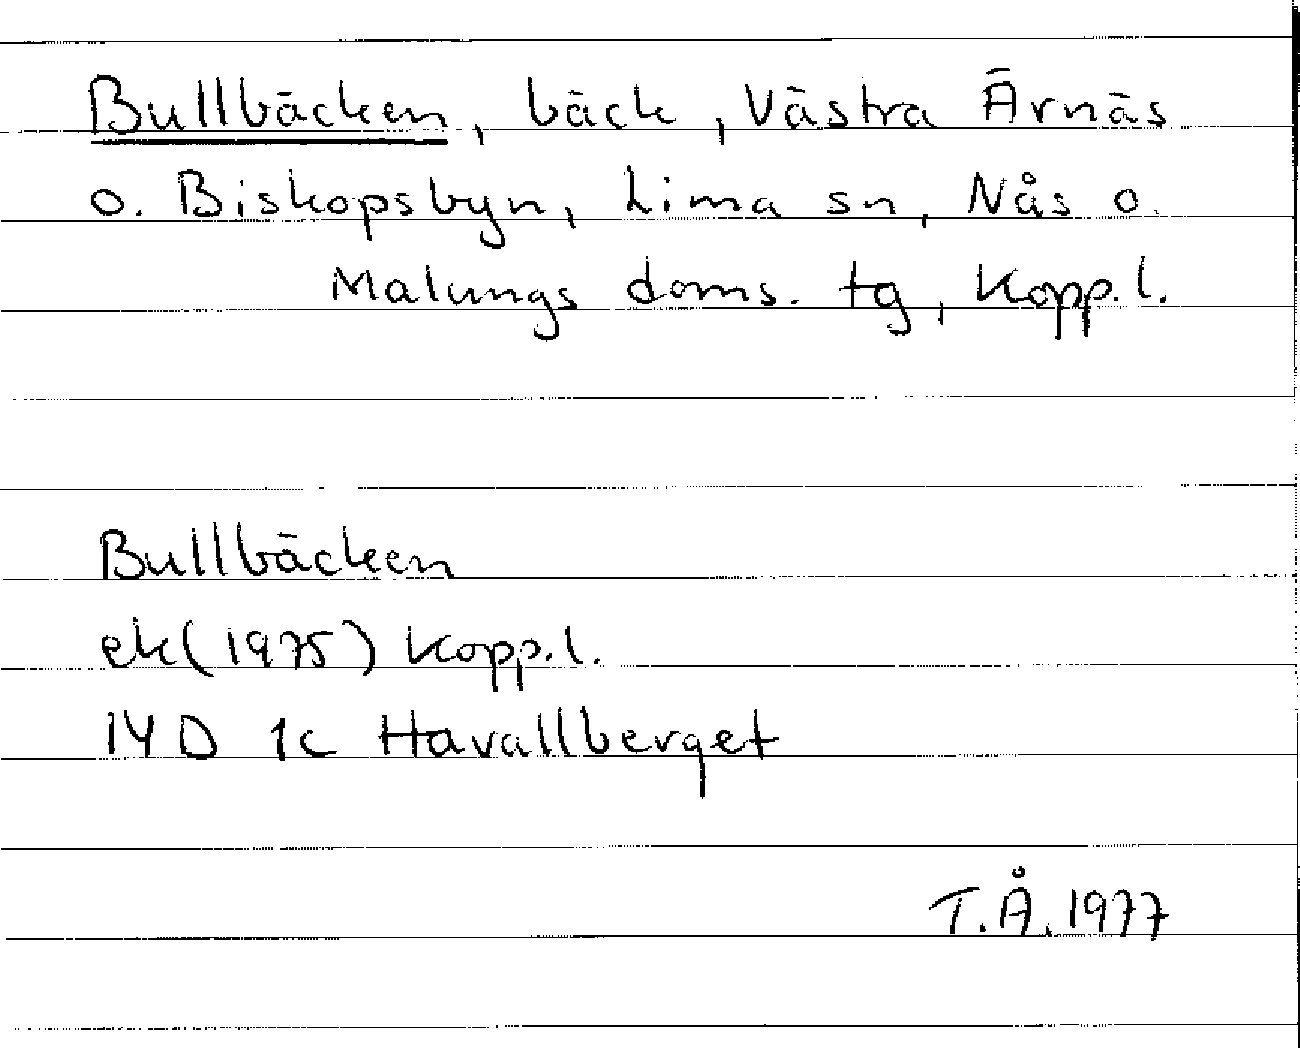 Bullbäcken, bäck, Västra Ärnäs
o. Biskopsbyn, Lima sn, Nås o.
Malungs doms. tg, Kopp.l.
Bullbäcken
ek(1975) Kopp.l.
14 D 1c Havallberget
T.Å.1977